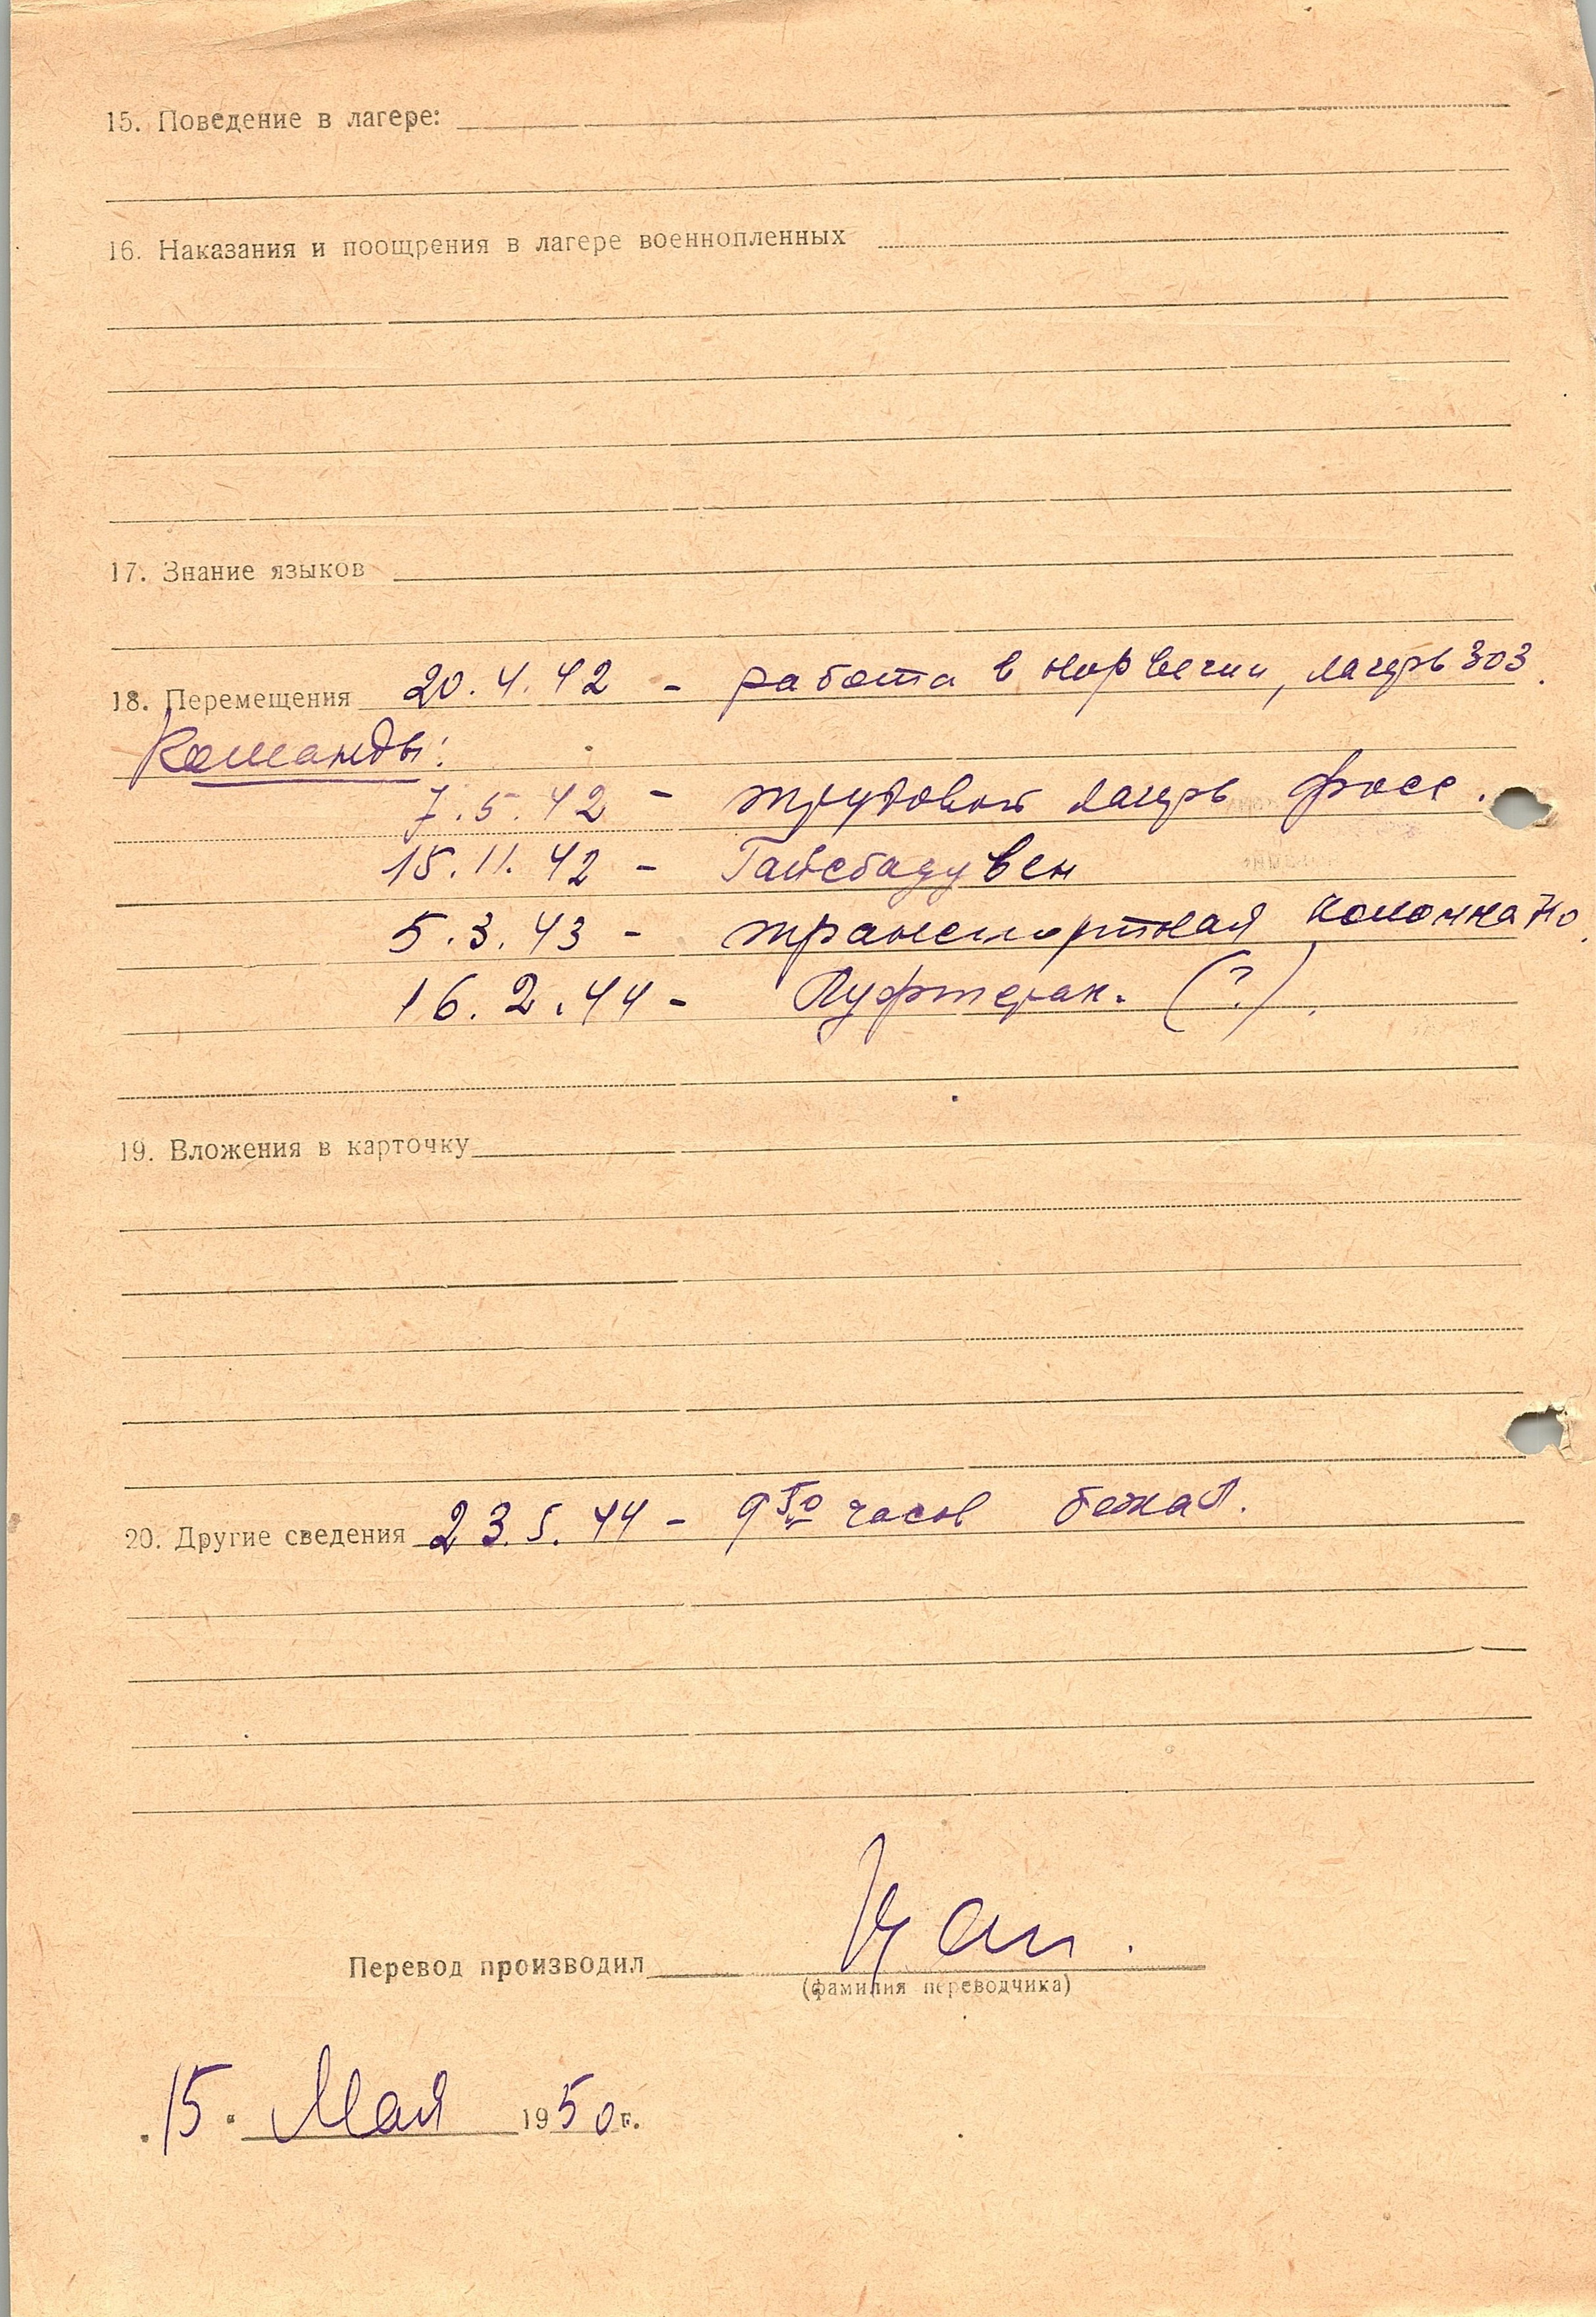 15. Поведение в лагере:
16. Наказания и поощрения в лагере военнопленных
17. Знание языков
18. Перемещения 20.4.42 - работа в Норвегии, лагерь 303.
Команды:
7.5.42 - трудовой лагерь Фосс.
15.11.42 - Гайсбадувен
5.3.43 - транспортная колонна
16.2.44 - Луфтгау (?).
19. Вложения в карточку
20. Другие сведения 23.5.44 - 9 50 часов бежал.
Перевод производил
(фамилия переводчика)
15. Мая 1950 г.